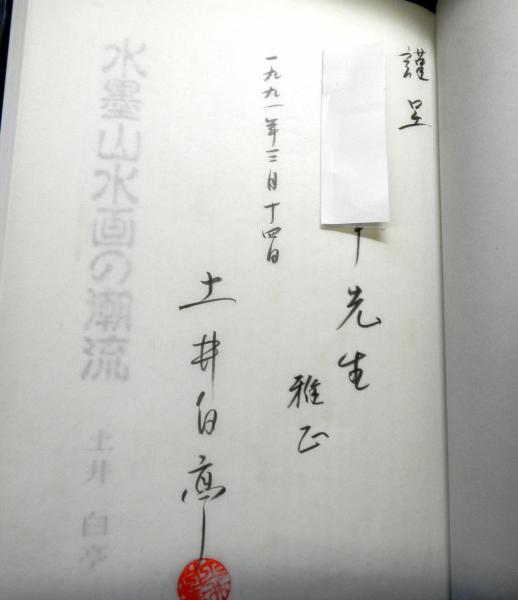 謹呈
先生
雅正
一九九一年三月十四日
土井白亭
水墨山水画の潮流
土井 白亭